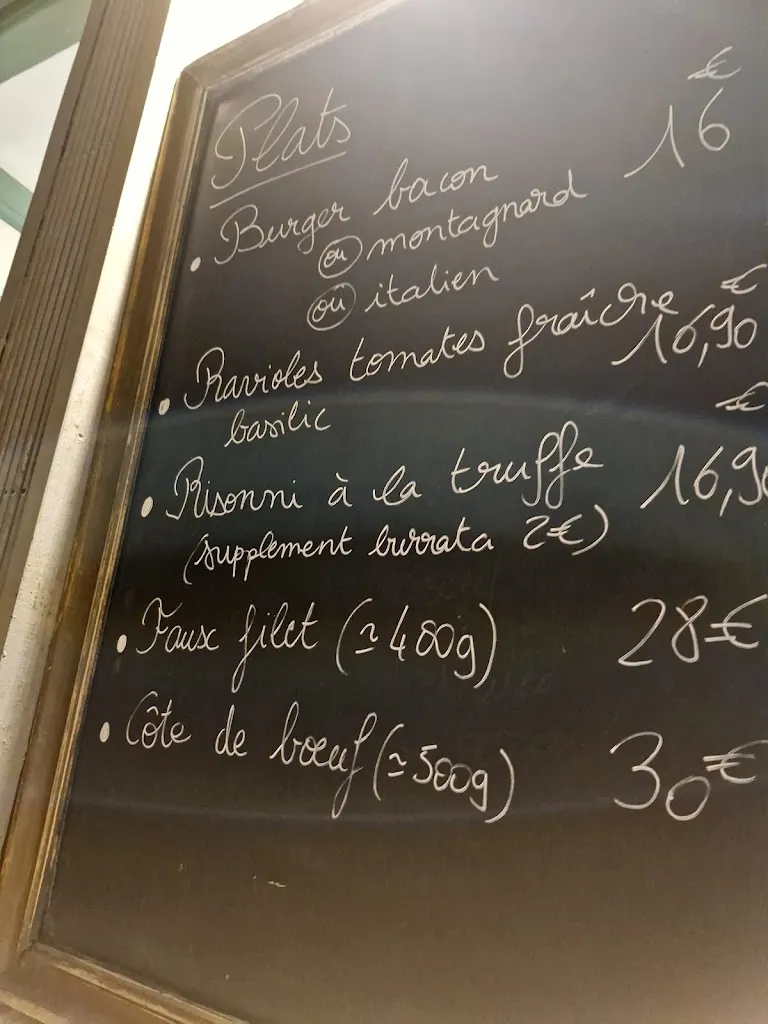 Plats
• Burger bacon 16 €
(ou) montagnard
(ou) italien
• Ravioles tomates fraîche 16,90 €
basilic
• Risonni à la truffe 16,90 €
(supplement burrata 2€)
• Faux filet (≃400g) 28€
• Côte de boeuf (≃500g) 30€